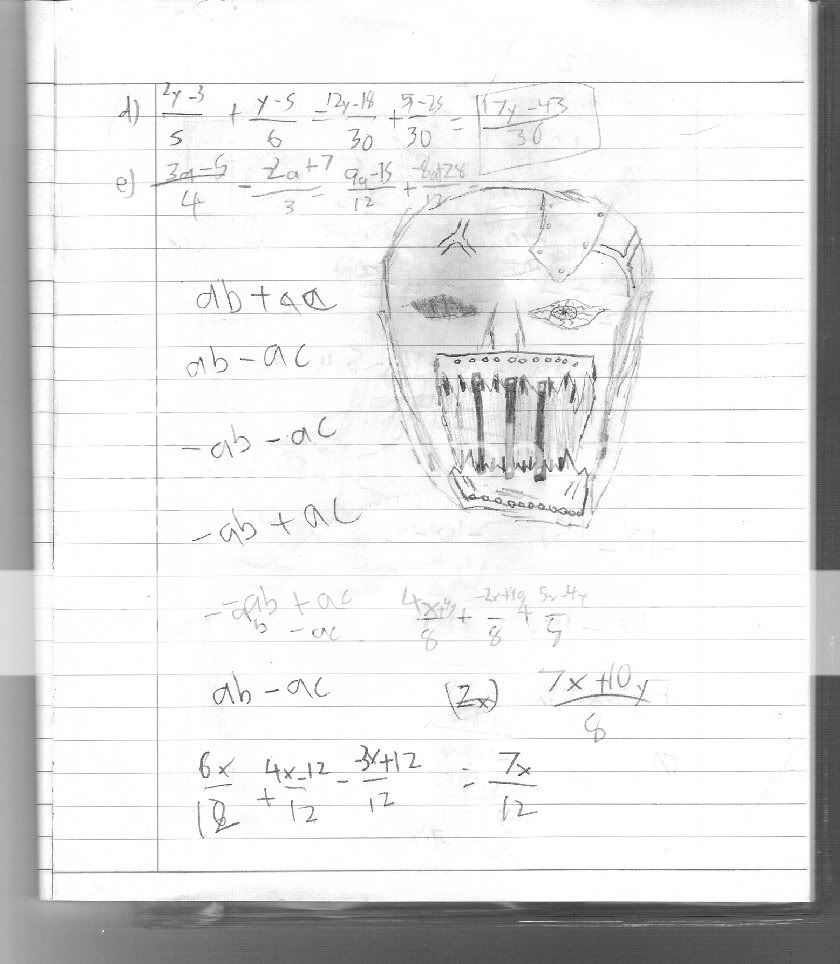 d) (2y-3)/5 + (y-5)/6 = (12y-18)/30 + (5y-25)/30 = (17y-43)/30
e) (3a-5)/4 - (2a+7)/3 = (9a-15)/12 + (-8a+28)/12 =
ab + aa
ab - ac
-ab - ac
-ab + ac
ab + ac (4x+4y)/8 +
- ac
ab - ac (2x) (7x+10y)/8
6x/12 + (4x-12)/12 - (3x+12)/12 = 7x/12